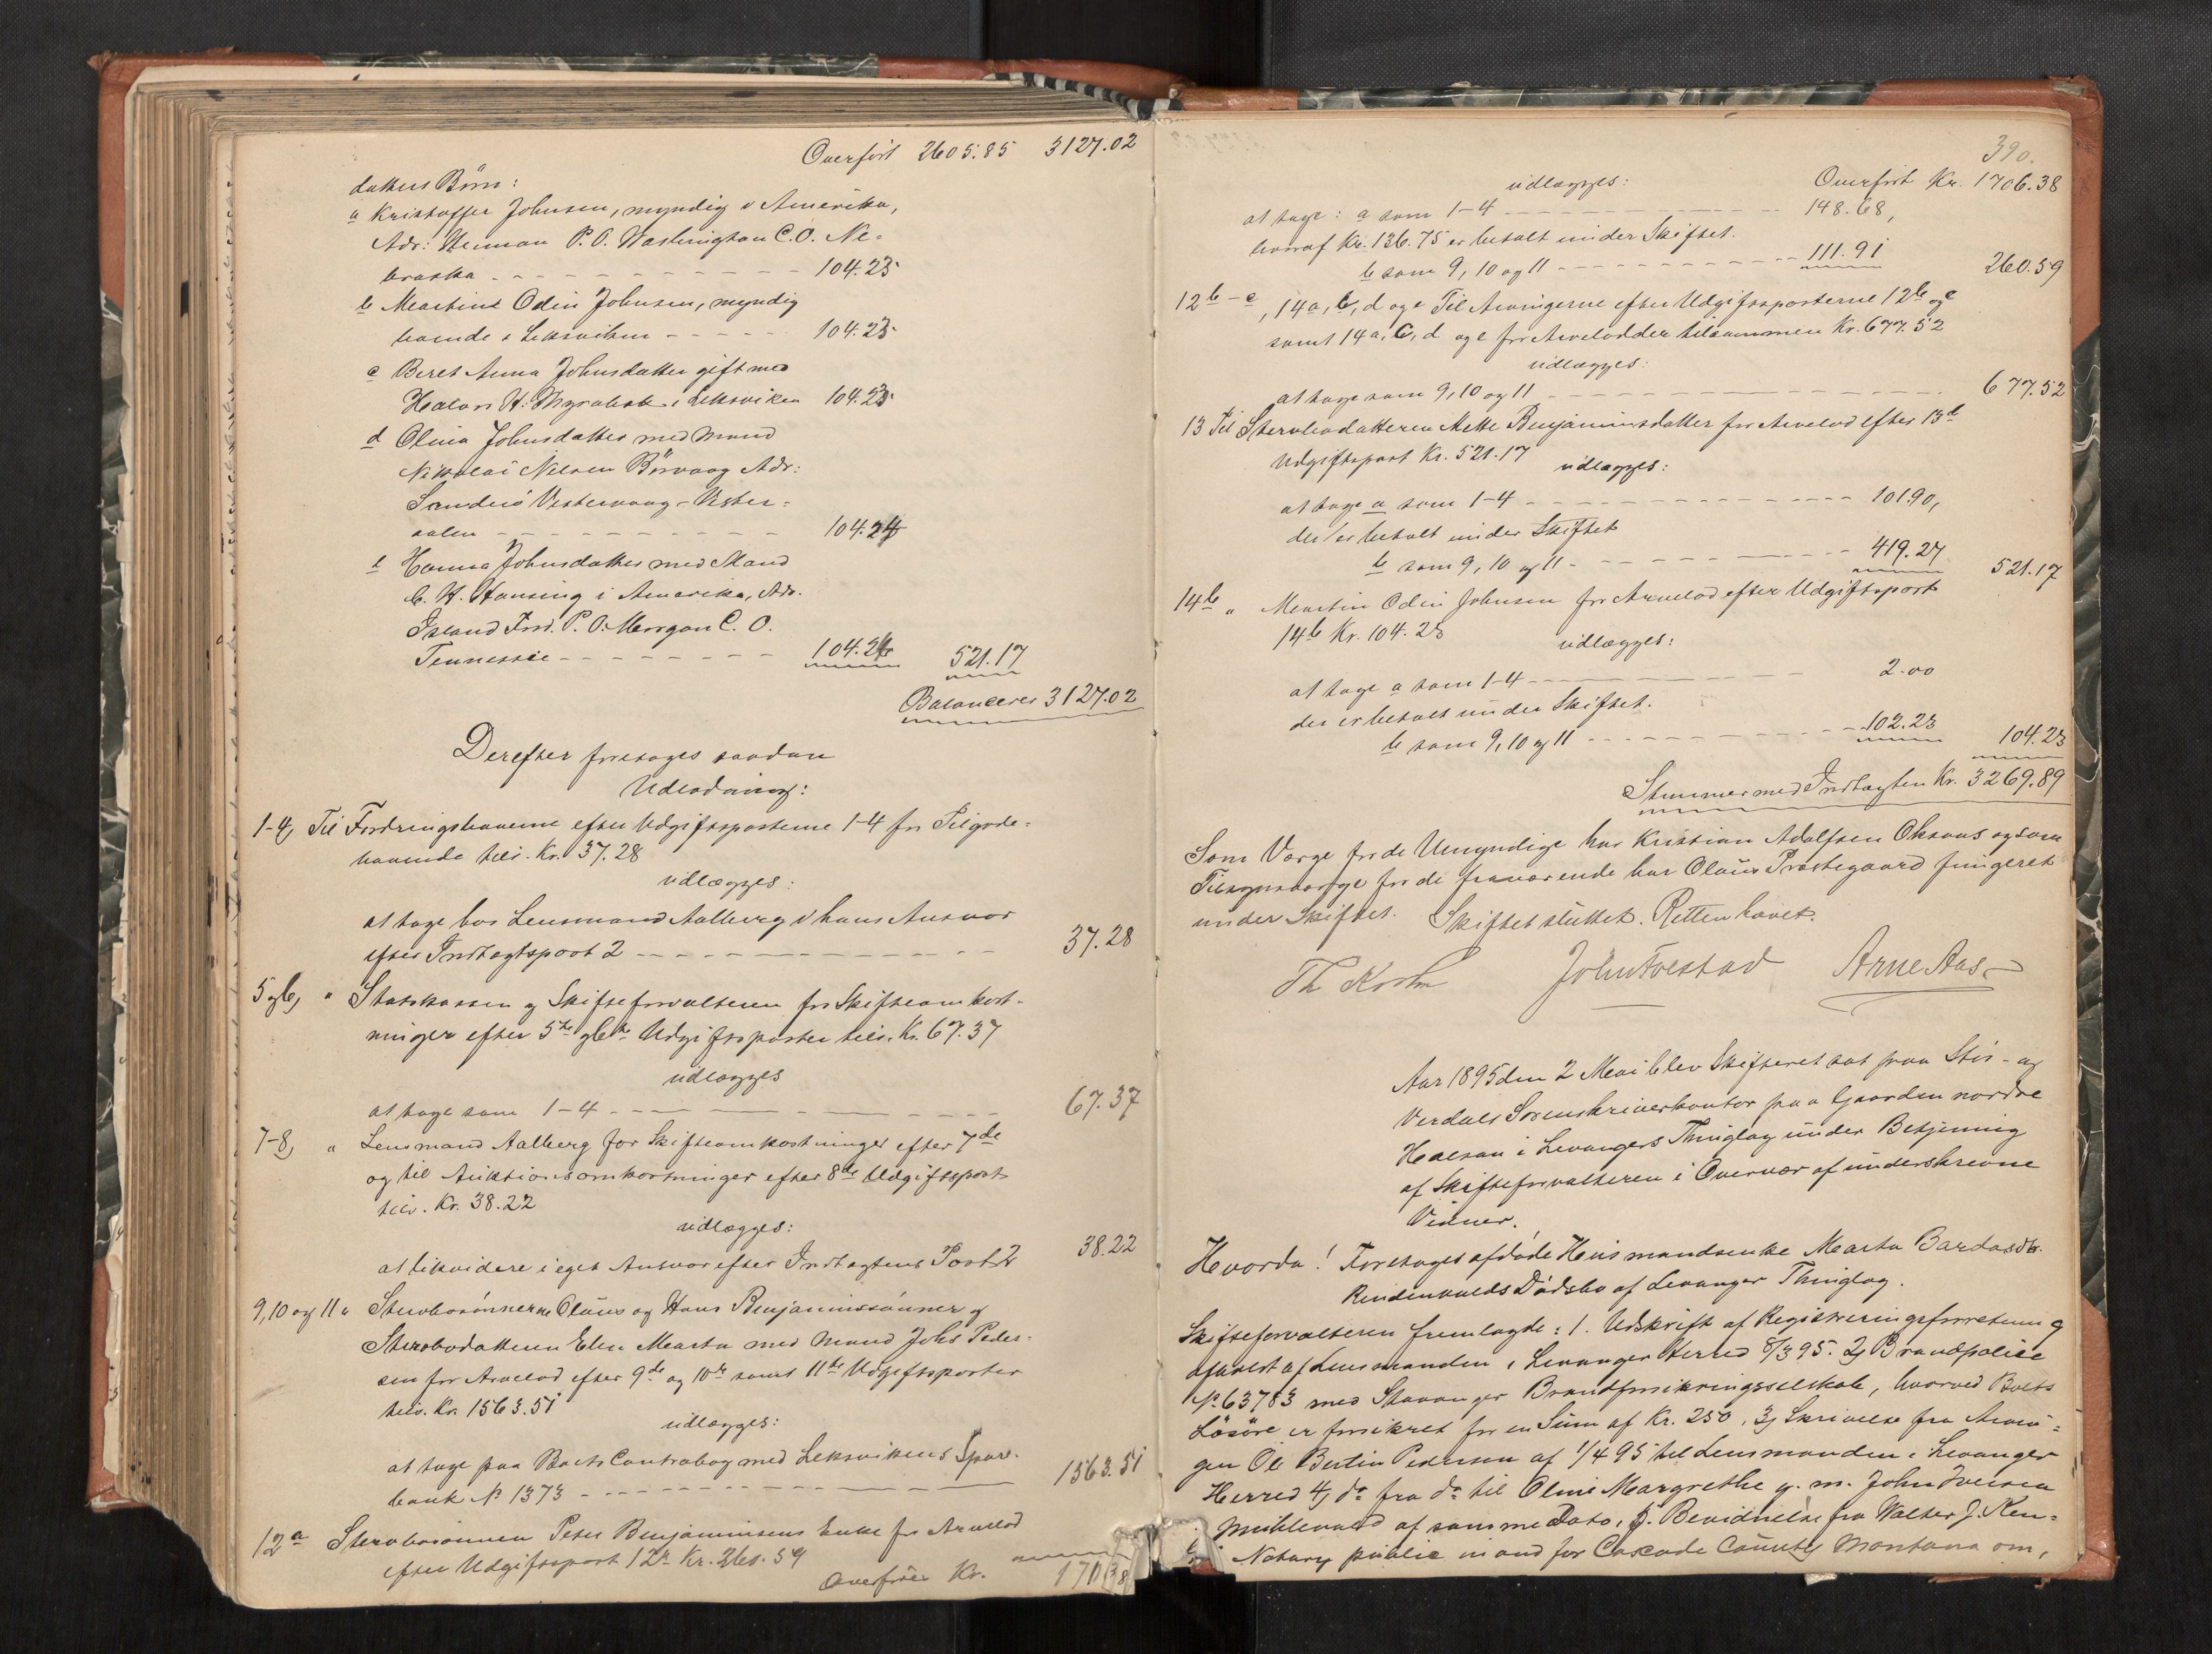 Overført 2605.85 3127.02
datters Børn:
a Kristoffer Johnsen, myndig i Amerika,
Adr: Herman P. O. Washington C.O. Ne-
braska 104.23
b Martine Odin Johnsen, myndig
boende i Leksviken 104.23
c Beret Anna Johnsdatter gift med
Halvor H. Myrabak i Leksviken 104.23
d Olina Johnsdatter med Mand
Nikolai Nilsen Börvaag Adr:
Sandnö Vestervaag-Vester-
aalen 104.24
e Hanna Johnsdatter med Mand
C. H. Hansing i Amerika, Adr.
Island Ford. P. O. Morgan C. O.
Tennessee 104.24 521.17
Balancerer 3127.02
Derefter foretoges saadan
Udlodning:
1-4, Til Fordringshaverne efter Udgiftsposterne 1-4 for Tilgode-
havende tils. Kr. 37.28
udlægges:
at tage hos Lensmand Aalberg i hans Ansvar
efter Indtægtspost 2 37.28
5 og 6, " Statskassen og Skifteforvalteren for Skifteomkost-
ninger efter 5te og 6te Udgiftsposter tils. Kr. 67.37
udlægges
at tage som 1-4 67.37
7-8, " Lensmand Aalberg for Skifteomkostninger efter 7de
og til Auktionsomkostninger efter 8de Udgiftspost
tils. Kr. 38.22
udlægges:
at likvidere i eget Ansvar efter Indtægtens Post 2 38.22
9, 10 og 11 " Stervbosönnerne Claus og Hans Benjaminssönner og
Stervbodatteren Elen Marta med Mand Johs Peder-
sen for Arvelod efter 9de og 10de samt 11te Udgiftsposter
tils. Kr. 1563.51
udlægges:
at tage paa Boets Contrabog med Leksvikens Spare-
bank No 1373 1563.51
12a Stervbosönnen Peter Benjaminsens Enke for Arvelod
efter Udgiftspost 12a Kr. 260.59
Overföres Kr. 1706.38
390.
Overført Kr. 1706.38
udlægges:
at tage: a som 1-4 148.68,
hvoraf Kr. 136.75 er betalt under Skiftet.
b som 9, 10 og 11 111.91 260.59
12b-c, 14a, c, d og e Til Arvingerne efter Udgiftsposterne 12b og c
samt 14a, c, d og e for Arvelodder tilsammen Kr. 677.52
udlægges:
at tage som 9, 10 og 11 677.52
13 Til Stervbodatteren Mette Benjaminsdatter for Arvelod efter 13de
Udgiftspost Kr. 521.17
udlægges:
at tage a som 1-4 101.90,
der er betalt under Skiftet
b som 9, 10 og 11 419.27 521.17
14b " Martin Odin Johnsen for Arvelod efter Udgiftspost
14b Kr. 104.23
udlægges:
at tage a som 1-4 2.00
der er betalt under Skiftet.
b som 9, 10 og 11 102.23 104.23
Stemmer med Indtægten Kr. 3269.89
Som Værge for de Umyndige har Kristian Adolfsen Oksaas og som
Tilsynsværge for de fraværende har Olaus Præstegaard fungeret
under Skiftet. Skiftet sluttet. Retten hævet.
John Foestad Arne Aas
Aar 1895 den 2 Mai blev Skifteret sat paa Stör- og
Verdals Sorenskriverkontor paa Gaarden nordre
Halsan i Levangers Thinglag under Betjening
af Skifteforvalteren i Overvær af underskrevne
Vidner.
Hvorda! Foretoges afdöde Husmandsenke Marta Bardosdtr.
Rindenvalds Dödsbo af Levanger Thinglag.
Skifteforvalteren fremlagde: 1. Udskrift af Registreringsforretning
afholdt af Lensmanden i Levanger Herred 8/3 95. 2, Brandpolice
No 63783 med Stavanger Brandforsikringsselskab, hvorved Boets
Lösöre er forsikret for en Sum af Kr. 250, 3, Skrivelse fra Arvin-
gen Ole Bertin Pedersen af 1/4 95 til Lensmanden i Levanger
Herred 4, do fra do til Oline Margrethe g. m. John Iversen
Mühlevold af samme Dato, 5. Bevidnelse fra Walter J. Ken-
Notary public in and for Cascade County Montana om,